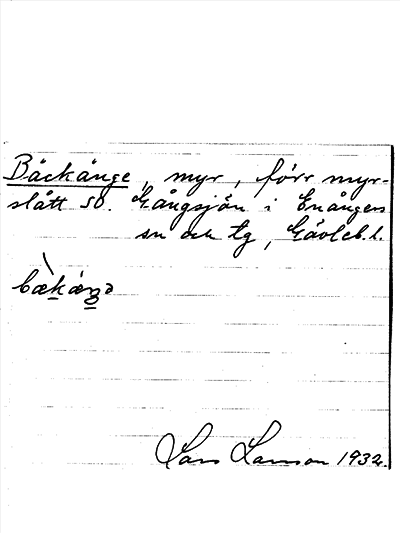 Bäckänge, myr, förr myr-
slått SO. Gångsjön i Enångers
sn och tg, Gävleb. l.
bækæŋə
Lars Larsson 1932.